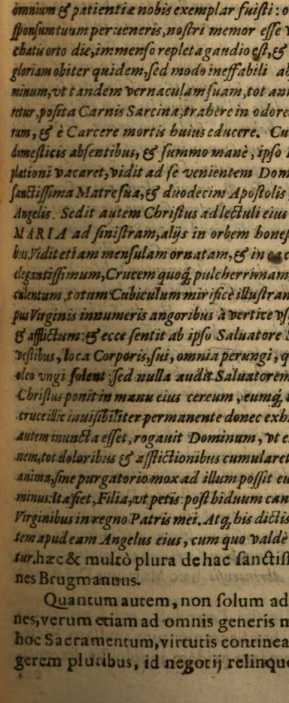 omnium & patientiæ nobis exemplar fuisti: o
sponsum tuum perueneris, nostri memor esse v
chatu orto die, immenso repleta gandio est, &
gloriam obiter quidem, sed modo ineffabili ab
minum, vt tandem vernaculam suam, tot an
retur, posita Carnis Sarcina, trahere in odore
rum, & è Carcere mortis huius educere. Cu
domesticis absentibus, & summo manè, ipso
plationi vacaret, vidit ad se venientem Dom
sanctissima Matre sua, & duodecim Apostolis
Angelis. Sedit autem Christus ad lectuli eius
MARIA ad sinistram, alijs in orbem hone
bus. Vidit etiam mensulam ornatam, & in
elegantissimum, Crucem quoq; pulcherrimam,
culentum, totum Cubiculum mirificè illustran
pus Virginis innumeris angoribus à vertice vs
& afflictum: & ecce sentit ab ipso Saluatore
vestibus, loca Corporis, sui, omnia perungi, q
oleo vngi solent: sed nulla audit Saluatorem
Christus ponit in manu eius cereum, eumq;
cruce illic inuisibiliter permanente donec exh
autem inuncta esset, rogauit Dominum, vt e
nem, tot doloribus & afflictionibus cumularet
anima, sine purgatorio mox ad illum possit eu
minus: Ita fiet, Filia, vt petis: post biduum can
Virginibus in regno Patris mei. Atq; his dictis
tem apud eam Angelus eius, cum quo valdè
tur. hæc & multò plura de hac sanctiss
nes Brugmannus.
Quantum autem, non solum ad
nes, verum etiam ad omnis generis m
hoc Sacramentum, virtutis contineat
gerem pluribus, id negotij relinque